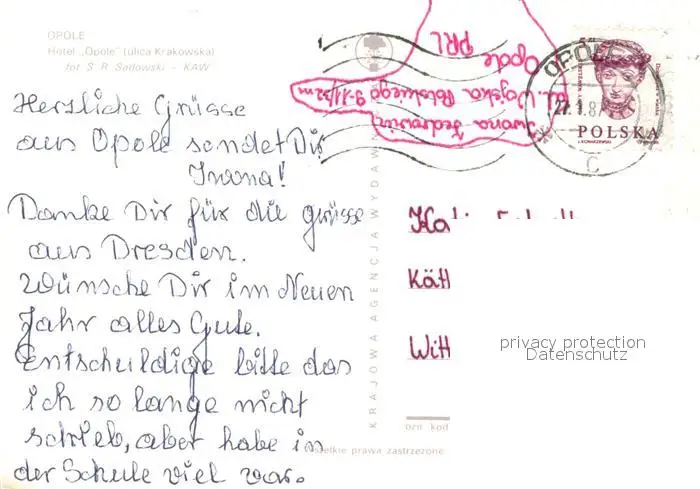 OPOLE
Hotel „Opole" (ulica Krakowska)
fot S. R. Sadowski - KAW
Herzliche Grüsse
aus Opole sendet Dir
Iwona!
Danke Dir für die grüsse
aus Dresden.
Wünsche Dir im Neuen
Jahr alles Gute.
Entschuldige bitte das
ich so lange nicht
schrieb, aber habe in
der Schule viel vor.
KRAJOWA AGENCJA WYDAW
Iwona
Wojska Polskiego 9-11/32m
Opole
PRL
OPOLE
27.1.87
C
POLSKA
Kät
Witt
privacy protection
Datenschutz
Wszelkie prawa zastrzeżone